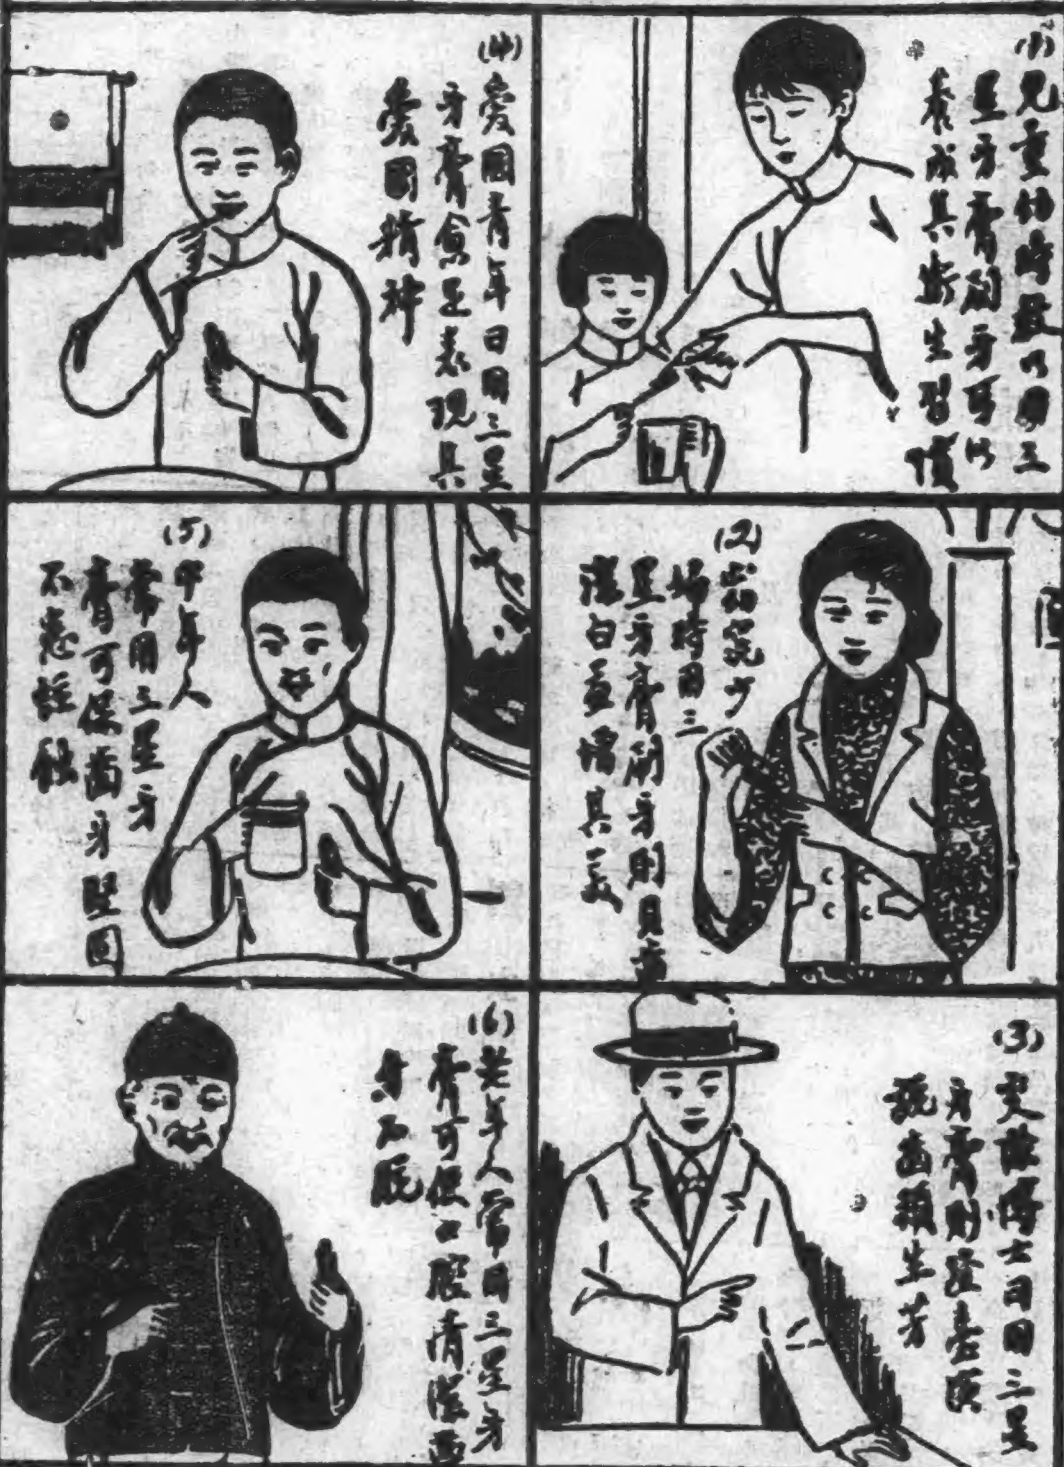 (1)
兒童幼時教以用三
星牙膏刷牙可以
養成其衛生習慣
(2)
幼院少
婦時用三
星牙膏刷牙則貝齒
潔白益增其美
(3)
演講博士日用三星
牙膏則登臺演
說齒頰生芳
(4)
愛國青年日用三星
牙膏愈足表現其
愛國精神
(5)
中年人
常用三星牙
膏可保齒牙堅固
不患蛀蝕
(6)
老年人常用三星牙
膏可使口腔清潔而
身不脫